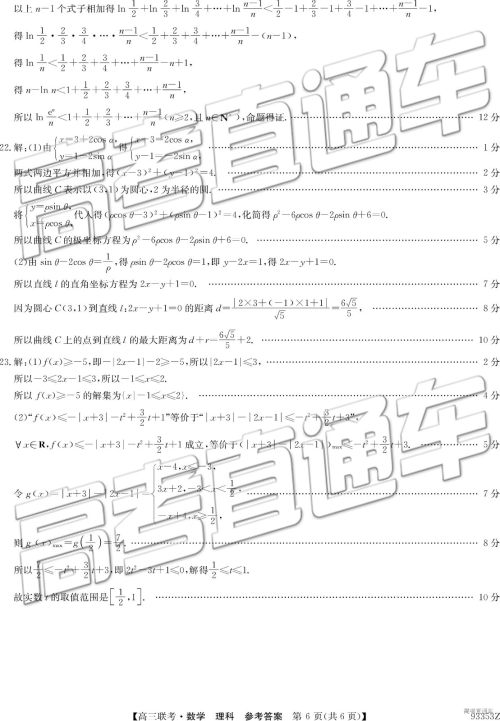 以上 n-1 个式子相加得 ln 1/2 + ln 2/3 + ln 3/4 + … + ln (n-1)/n < 1/2 - 1 + 2/3 - 1 + 3/4 - 1 + … + (n-1)/n - 1,
得 ln 1/2 · 2/3 · 3/4 · … · (n-1)/n < 1/2 + 2/3 + 3/4 + … + (n-1)/n - (n-1),
得 ln 1/n < 1/2 + 2/3 + 3/4 + … + (n-1)/n - n+1,
得 n-ln n < 1 + 1/2 + 2/3 + 3/4 + … + (n-1)/n,
所以 ln eⁿ/n < 1 + 1/2 + 2/3 + … + (n-1)/n (n≥2,且 n∈N*),命题得证. …… 12 分
22.解:(1)由 {x=3+2cos α, y=1+2sin α 得 {x-3=2cos α, y-1=2sin α, …… 1 分
两式两边平方并相加,得(x-3)²+(y-1)²=4. …… 2 分
所以曲线 C 表示以(3,1)为圆心,2 为半径的圆. …… 3 分
将 {y=ρsin θ, x=ρcos θ, 代入得(ρcos θ-3)²+(ρsin θ-1)²=4,化简得 ρ²-6ρcos θ-2ρsin θ+6=0.
所以曲线 C 的极坐标方程为 ρ²-6ρcos θ-2ρsin θ+6=0. …… 5 分
(2)由 sin θ-2cos θ=1/ρ,得 ρsin θ-2ρcos θ=1,即 y-2x=1,得 2x-y+1=0.
所以直线 l 的直角坐标方程为 2x-y+1=0. …… 7 分
因为圆心 C(3,1)到直线 l:2x-y+1=0 的距离 d=|2×3+(-1)×1+1|/√5=6√5/5, …… 8 分
所以曲线 C 上的点到直线 l 的最大距离为 d+r=6√5/5+2. …… 10 分
23.解:(1) f(x)≥-5,即-|2x-1|-2≥-5,所以|2x-1|≤3, …… 2 分
所以-3≤2x-1≤3,所以-1≤x≤2.
所以 f(x)≥-5 的解集为{x|-1≤x≤2}. …… 4 分
(2)“f(x)≤-|x+3|-t²+3/2 t+1”等价于“|x+3|-|2x-1|≤-t²+3/2 t+3”,
∀x∈R, f(x)≤-|x+3|-t²+3/2 t+1 成立,等价于(|x+3|-|2x-1|)max≤-t²+3/2 t+3. …… 5 分
令 g(x)=|x+3|-|2x-1|= {x-4,x≤-3, 3x+2,-3<x<1/2, -x+4,x≥1/2, …… 7 分
则 g(x)max=g(1/2)=7/2, …… 8 分
所以 7/2≤-t²+3/2 t+3,即 2t²-3t+1≤0,解得 1/2≤t≤1.
故实数 t 的取值范围是[1/2,1]. …… 10 分
高考直通车
高考直通车
高考直通车
【高三联考·数学 理科 参考答案 第 6 页(共 6 页)】
93353Z